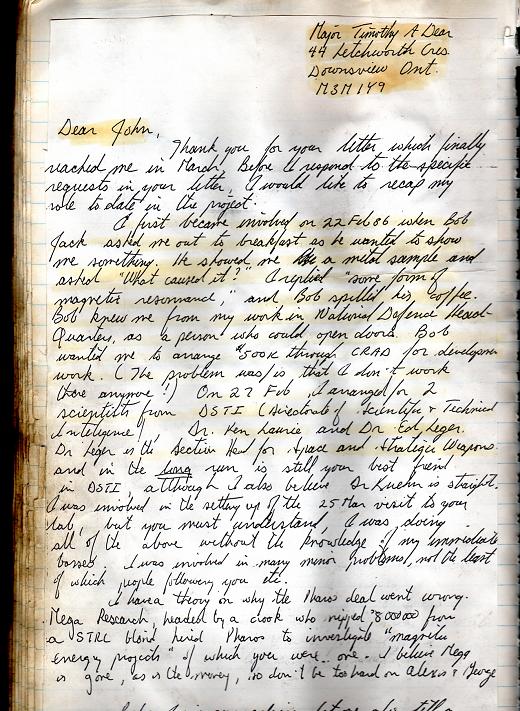 Major Timothy A Dear
44 Letchworth Cres
Downsview Ont.
M3M 1Y9
Dear John,
Thank you for your letter, which finally
reached me in March. Before I respond to the specific
requests in your letter, I would like to recap my
role to date in the project.
I first became involved on 22 Feb 86 when Bob
Jack asked me out to breakfast as he wanted to show
me something. He showed me a metal sample and
asked "What caused it?" I replied "some form of
magnetic resonance," and Bob spilled his coffee.
Bob knew me from my work in National Defence Head-
Quarters, as a person who could open doors. Bob
wanted me to arrange $500K through CRAD for developmen
work. (The problem was/is that I don't work
there anymore!) On 27 Feb I arranged for 2
scientists from DSTI (Directorate of Scientific & Technical
Intelligence), Dr. Ken Laurie and Dr. Ed Leger.
Dr Leger is the Section Head for Space and Strategic Weapons
and in the long run is still your best friend
in DSTI, although I also believe Dr Kuehn is straight.
I was involved in the setting up of the 25 Mar visit to your
lab, but you must understand, I was doing
all of the above without the knowledge of my immediate
bosses. I was involved in many minor problems, not the least
of which people following you etc.
I have a theory on why the Pharos deal went wrong.
Mega Research, headed by a crook who ripped $800000 from
a STRC blond hired Pharos to investigate "magnetic
energy projects" of which you were one. I believe Mega
is gone, as is the money, so don't be too hard on Alexis & George